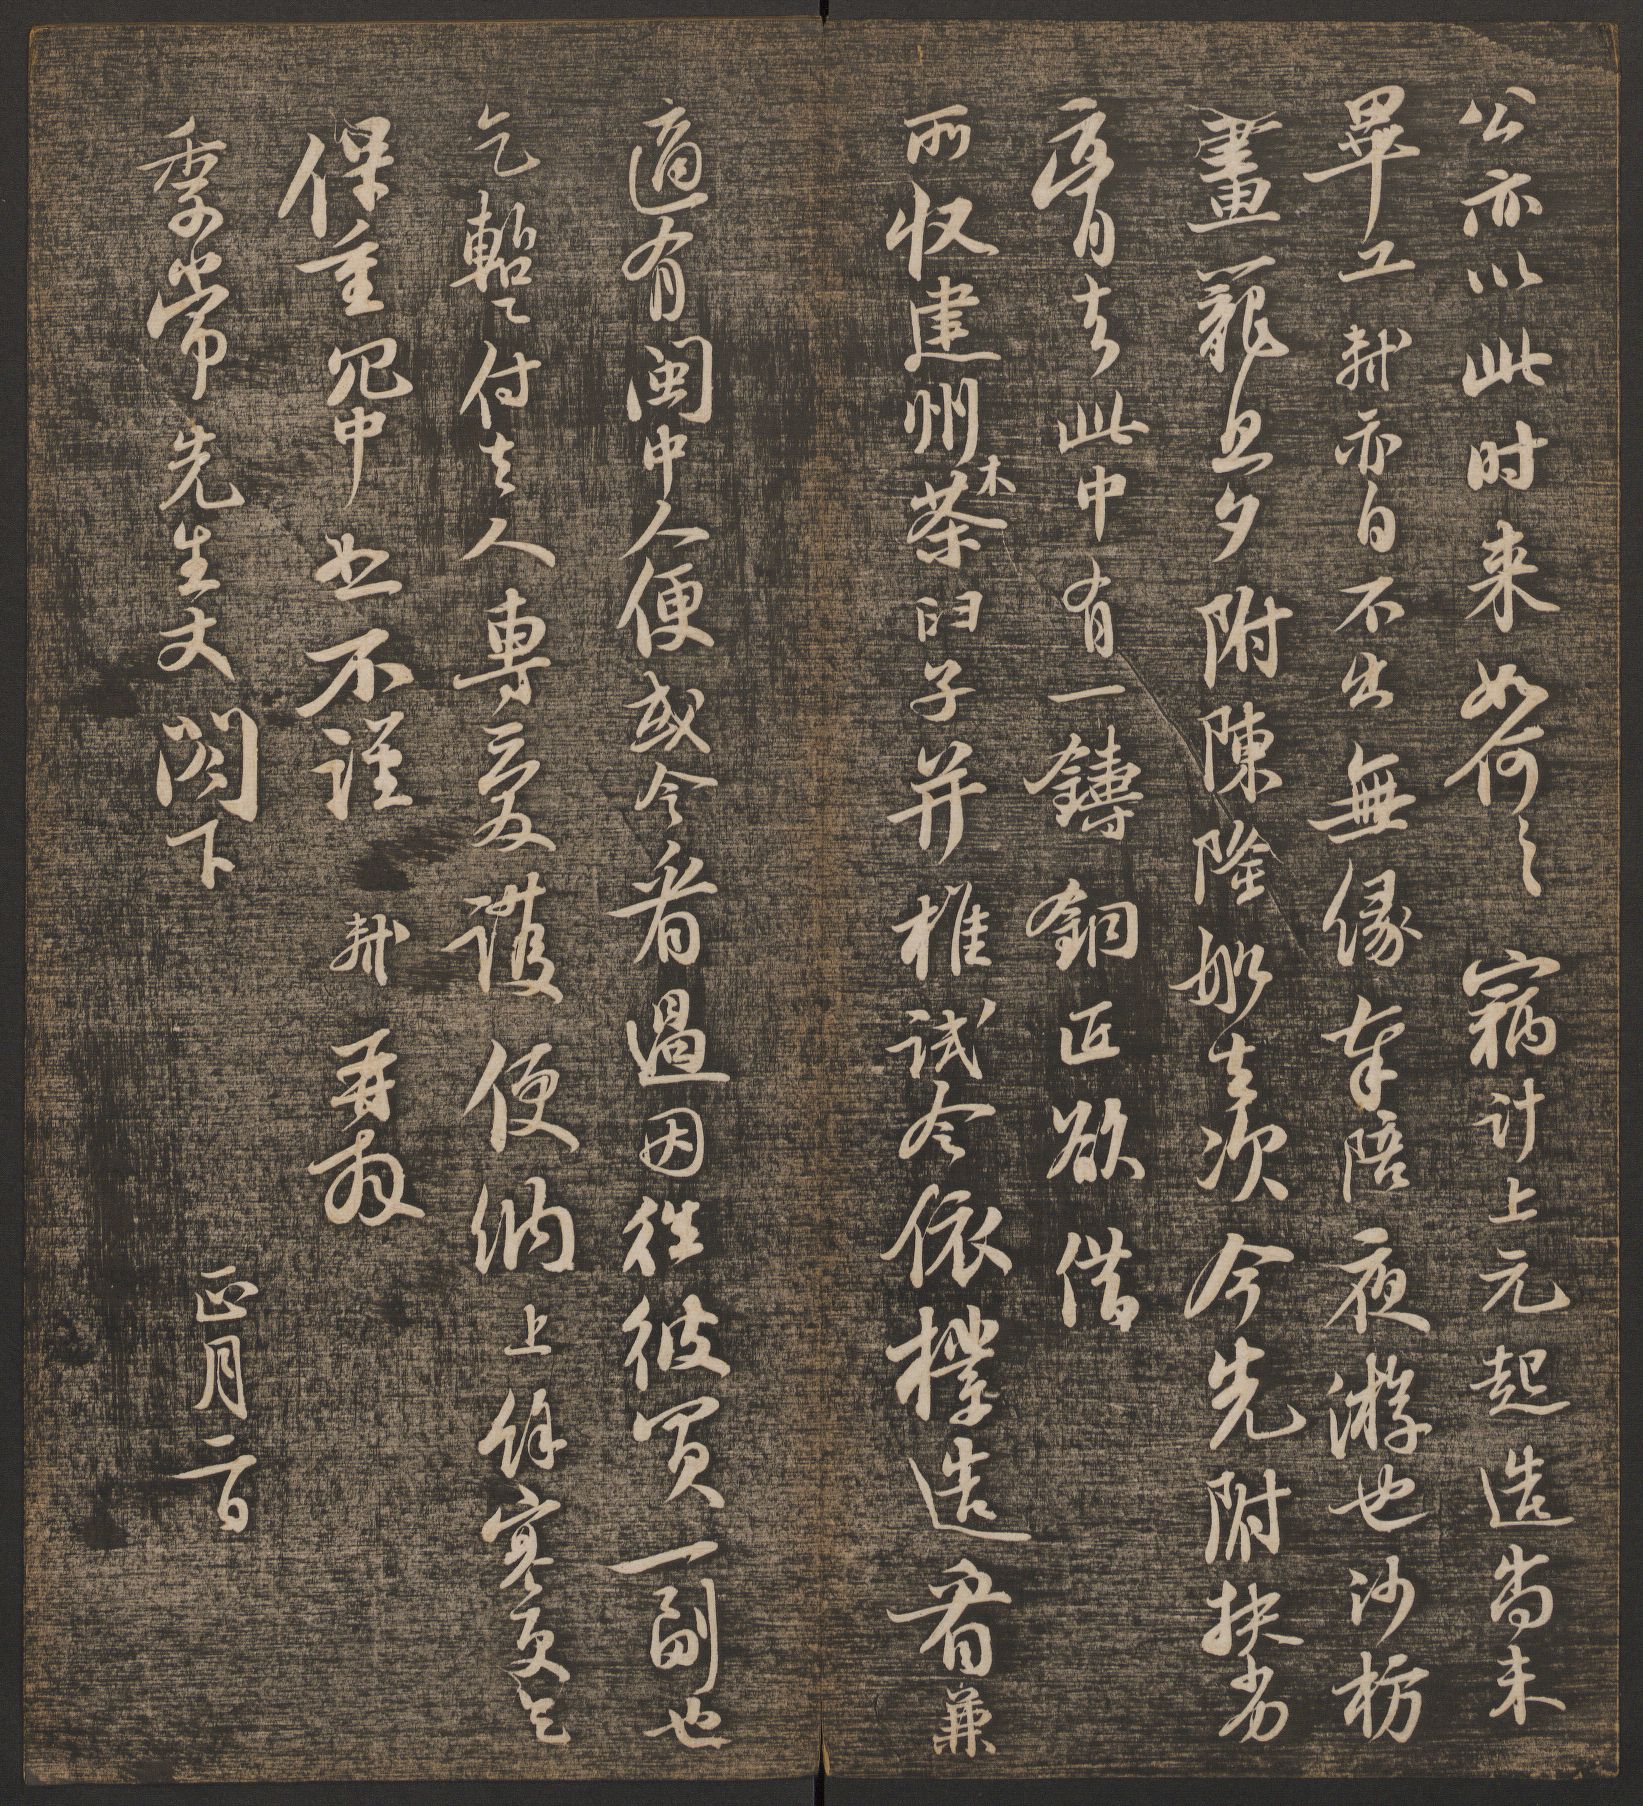 公亦以此时来如何々窃计上元起造尚未
畢工軾亦自不出無緣奉陪夜游也沙枋
畫籠旦夕附陳隆船去次今先附扶劣
膏去此中有一鑄銅匠欲借
所收建州茶臼子并椎試令依樣造看兼
木
適有閩中人便或令看過因往彼買一副也
乞暫付去人專爱護便納上餘寒更乞
保重冗中恕不謹 軾再拜
季常先生丈閣下 正月二日